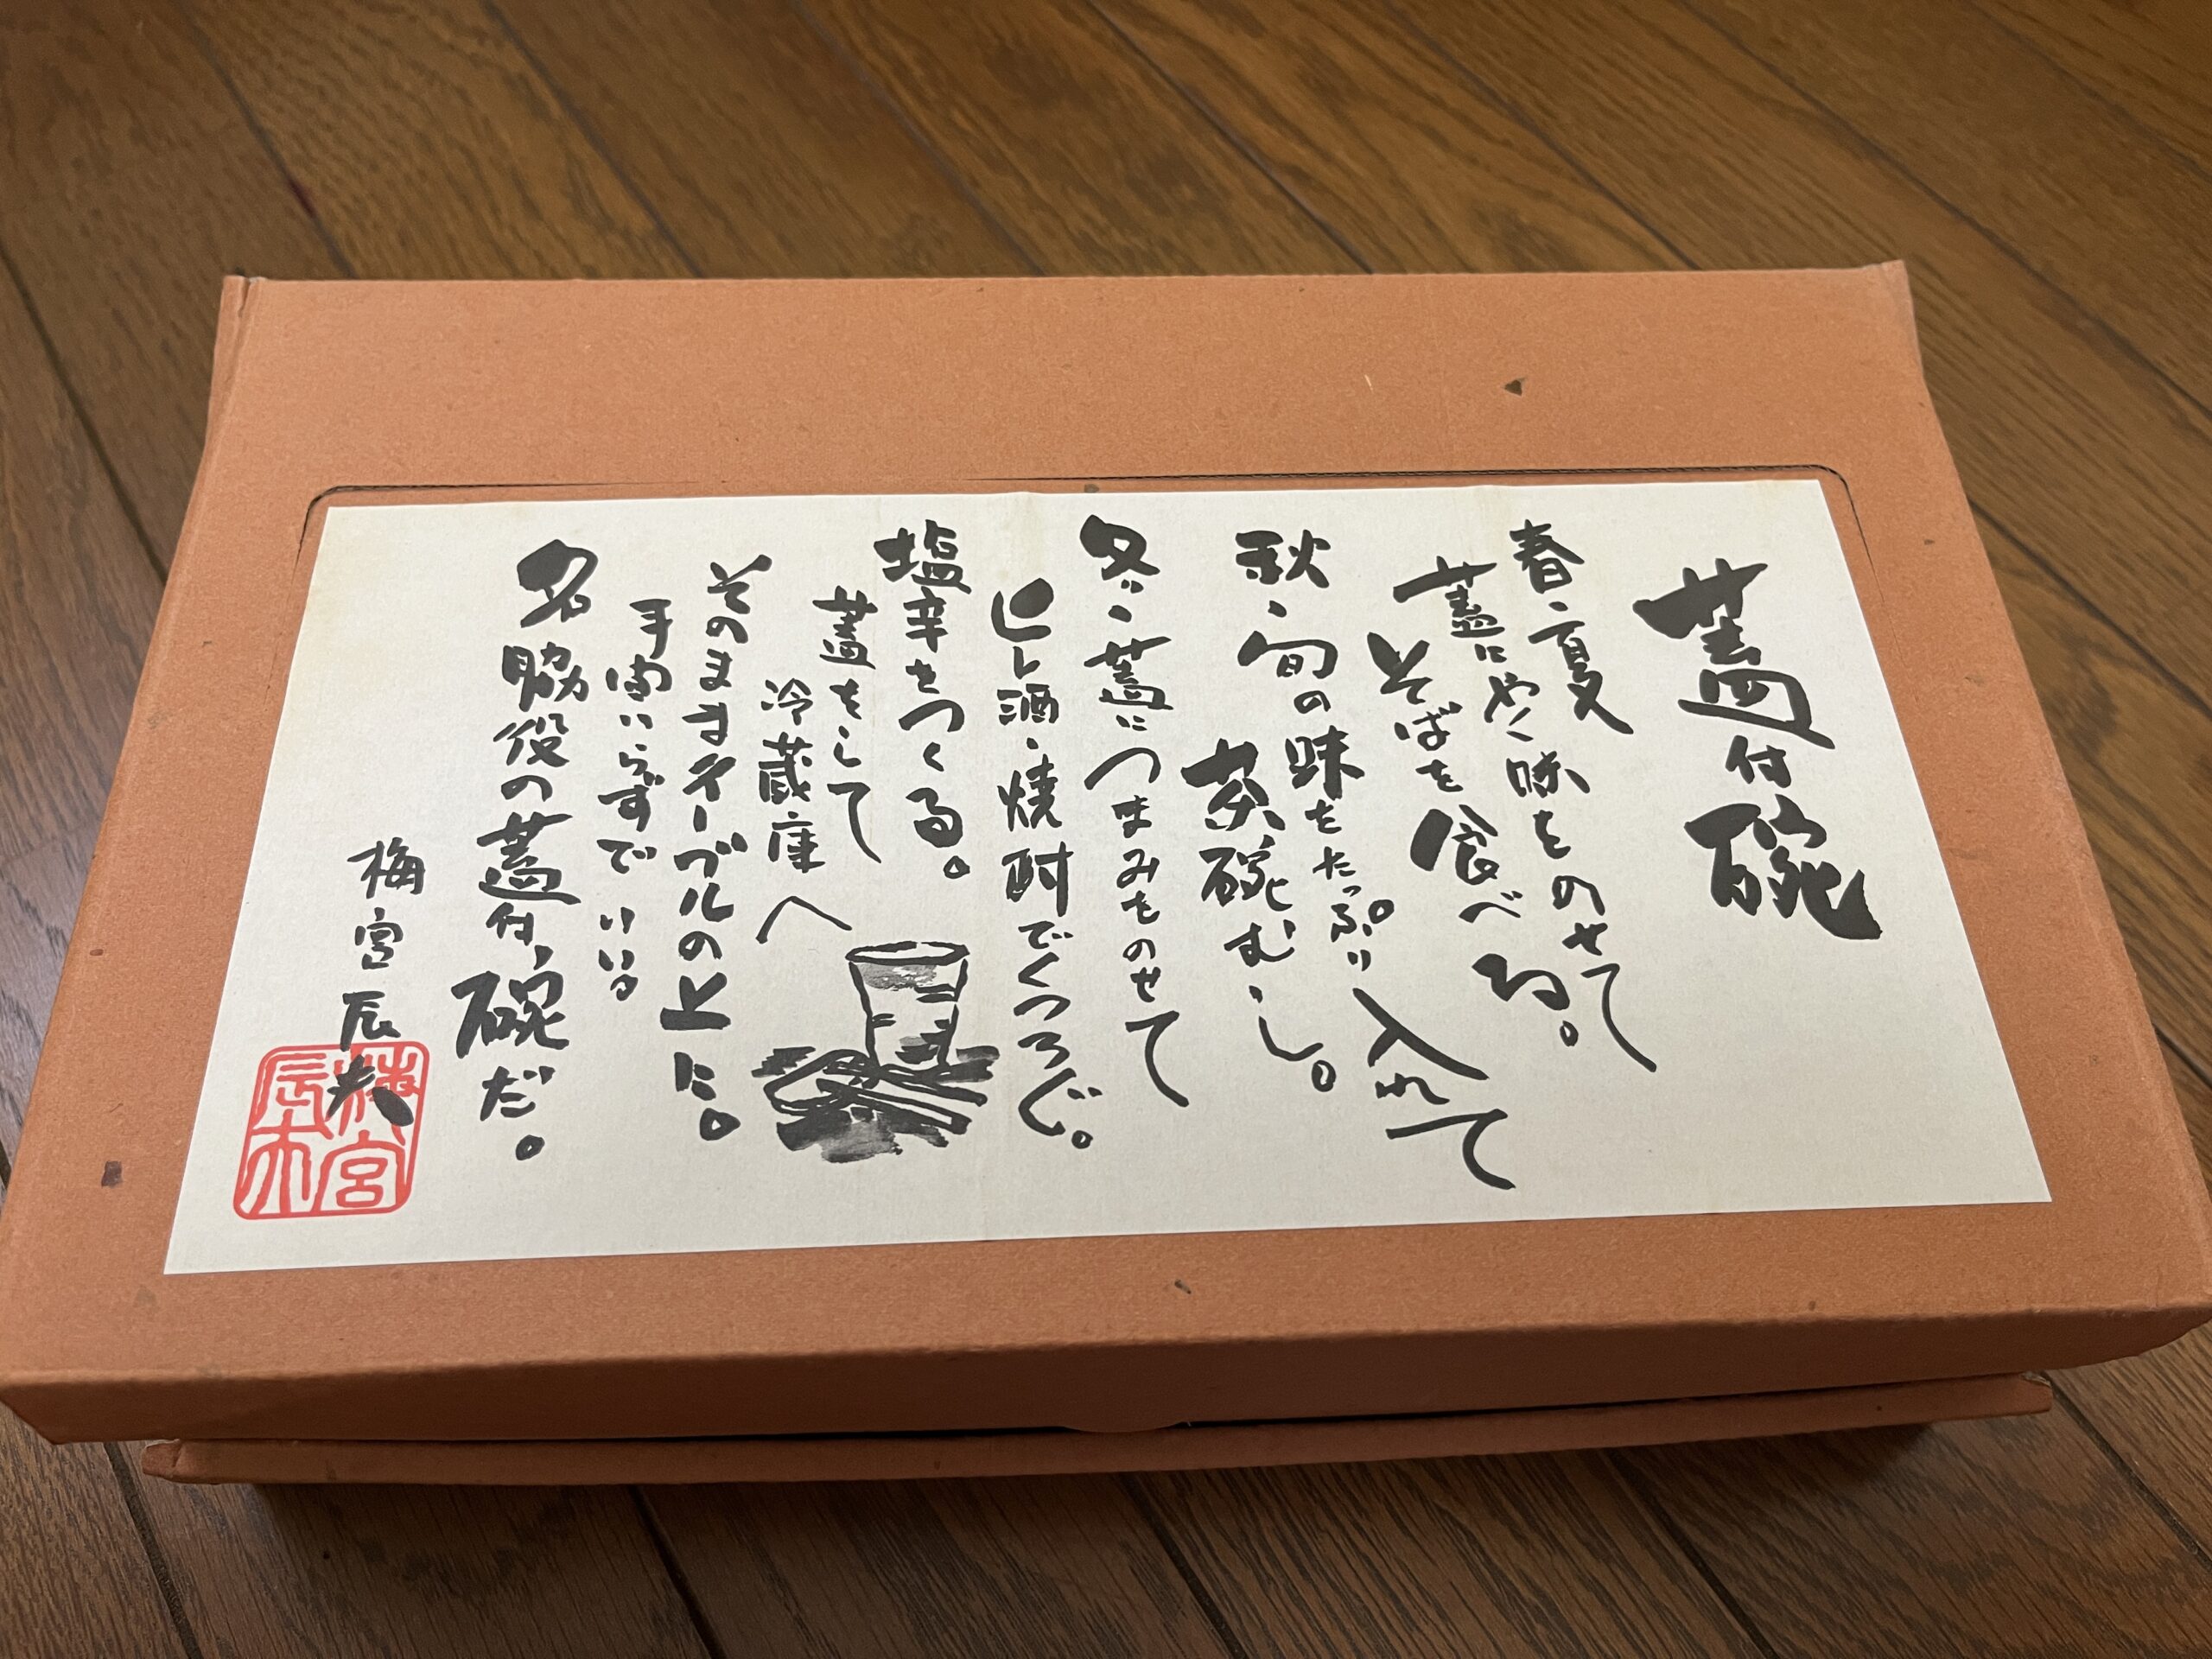 蓋付碗
春、夏
蓋にやく味をのせて
そばを食べる。
秋、旬の味をたっぷり入れて
茶碗むし。
冬、蓋につまみをのせて
ヒレ酒、焼酎でくつろぐ。
塩辛をつくる。
蓋をして
冷蔵庫へ
そのままテーブルの上に。
手間いらずでいい。
名脇役の蓋付碗だ。
梅宮辰夫
梅宮
辰夫